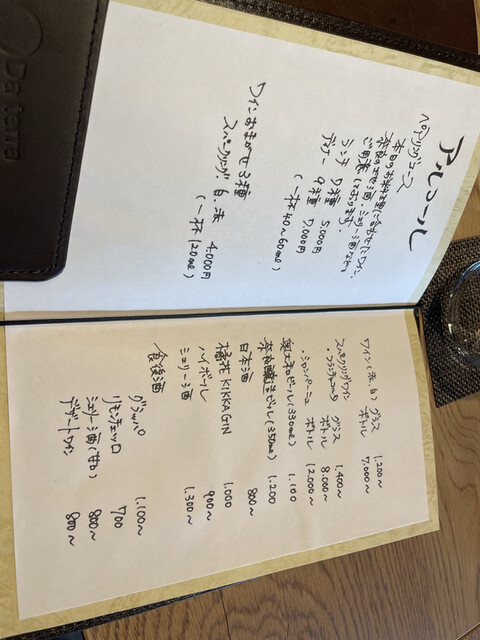 Da terra
アルコール
ペアリングコース
本日のお料理に合わせてワイン、
奈良の地酒、シェリー酒などを
ご用意しております。
ランチ 7種 5.000円
ディナー 9種 7.000円
(一杯 40~60ml)
ワインおまかせ3種
スパークリング、白、赤 4.000円
(一杯 120ml)
ワイン(赤、白) グラス 1.200~
ボトル 7.000~
スパークリングワイン グラス 1.400~
・フランチャコルタ ボトル 8.000~
・シャンパーニュ ボトル 12.000~
奥大和ビール(330ml) 1.100
奈良醸造ビール(350ml) 1.200
日本酒 800~
橘花 KIKKA GIN 1.000
ハイボール 900~
シェリー酒 1.300~
食後酒
グラッパ 1.100~
リモンチェッロ 700
シェリー酒(甘口) 800~
デザートワイン 800~